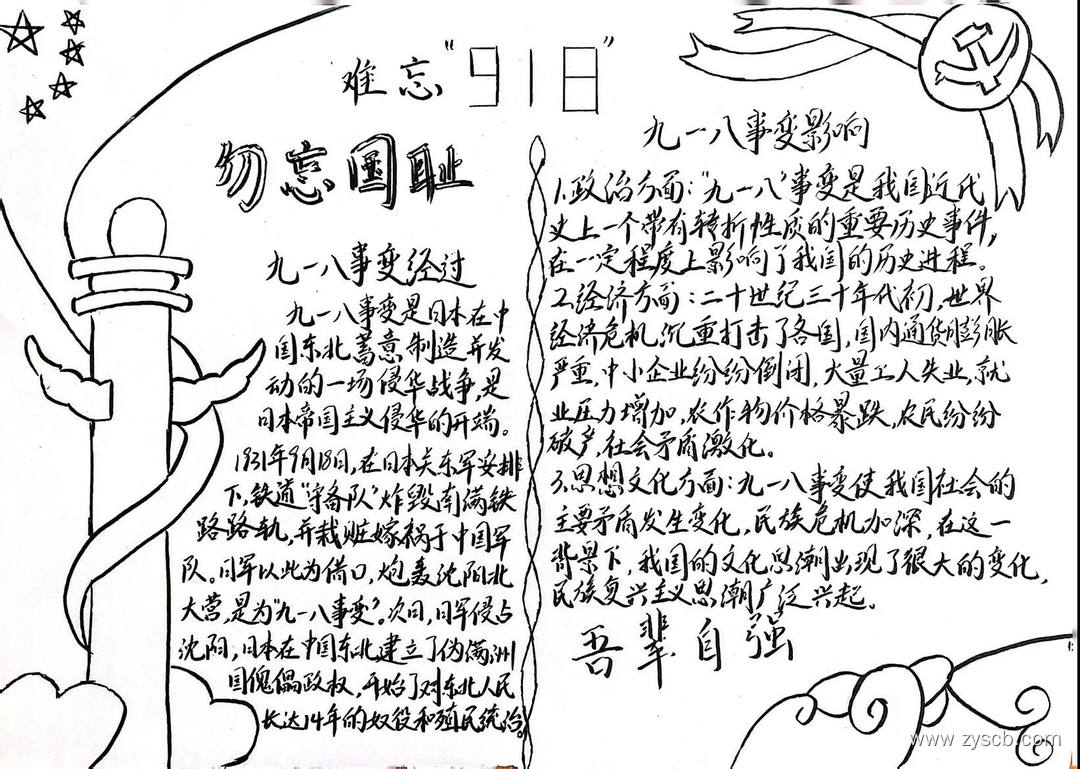 难忘“918”
勿忘国耻
九一八事变经过
九一八事变是日本在中
国东北蓄意制造并发
动的一场侵华战争,是
日本帝国主义侵华的开端。
1931年9月18日,在日本关东军安排
下,铁道“守备队”炸毁南满铁
路路轨,并栽赃嫁祸于中国军
队。日军以此为借口,炮轰沈阳北
大营,是为“九一八事变”。次日,日军侵占
沈阳,日本在中国东北建立了伪满洲
国傀儡政权,开始了对东北人民
长达14年的奴役和殖民统治。
九一八事变影响
1.政治方面:“九一八”事变是我国近代
史上一个带有转折性质的重要历史事件,
在一定程度上影响了我国的历史进程。
2.经济方面:二十世纪三十年代初,世界
经济危机沉重打击了各国,国内通货膨胀
严重,中小企业纷纷倒闭,大量工人失业,就
业压力增加,农作物价格暴跌,农民纷纷
破产,社会矛盾激化。
3.思想文化方面:九一八事变使我国社会的
主要矛盾发生变化,民族危机加深,在这一
背景下,我国的文化思潮出现了很大的变化,
民族复兴主义思潮广泛兴起。
吾辈自强
www.zyscb.com